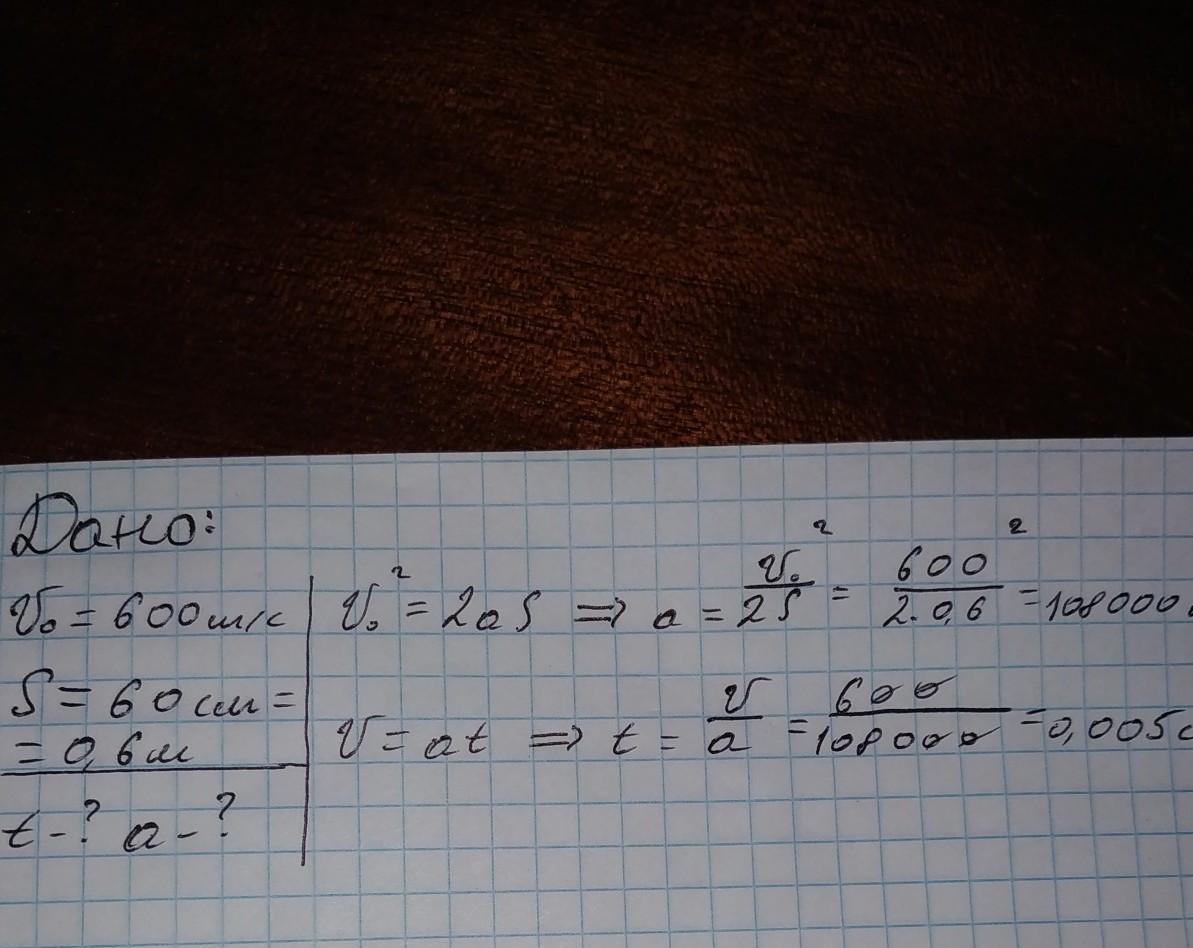 Дано:
v₀ = 600 м/с
S = 60 см =
= 0,6 м
t - ? a - ?
v₀² = 2aS ⇒ a = v₀²/2S = 600²/2·0,6 = 108000
v = at ⇒ t = v/a = 600/108000 = 0,005 с